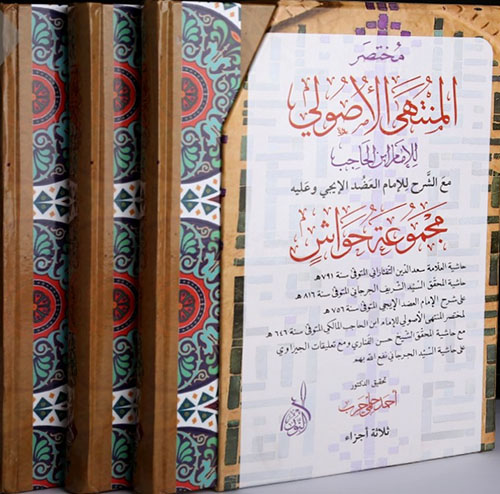 مُختصر
المُنتهى الأصُولي
للإمام ابن الحاجب
مع الشَّرح للإمام العضُد الإيجي وعليه
مَجموعَة حَواشٍ
حاشية العلّامة سعد الدّين التفتازاني المتوفى سنة ٧٩١هـ
حاشية المحقّق السيّد الشّريف الجرجاني المتوفى سنة ٨١٦هـ
على شرح الإمام العضد الإيجي المتوفى سنة ٧٥٦هـ
لمختصر المنتهى الأصولي للإمام ابن الحاجب المالكي المتوفى سنة ٦٤٦هـ
مع حاشية المحقّق الشيخ حسن الفناري ومع تعليقات الجيزاوي
على حاشية السيّد الجرجاني نفع الله بهم
تحقيق الدكتور
أحمد حلمي حرب
ثلاثة أجزاء